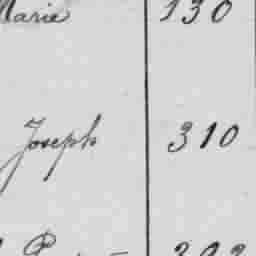 Marie 130
Joseph 310